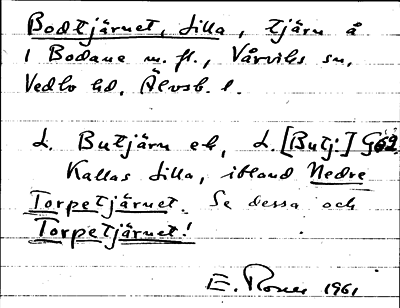 Bodtjärnet, Lilla, tjärn å
1 Bodane m. fl., Vårviks sn,
Vedbo hd, Älvsb. l.
L. Butjärn ek, L. [Butj:] G62.
Kallas Lilla, ibland Nedre
Torpetjärnet. Se dessa och
Torpetjärnet!
E. Rosen 1961